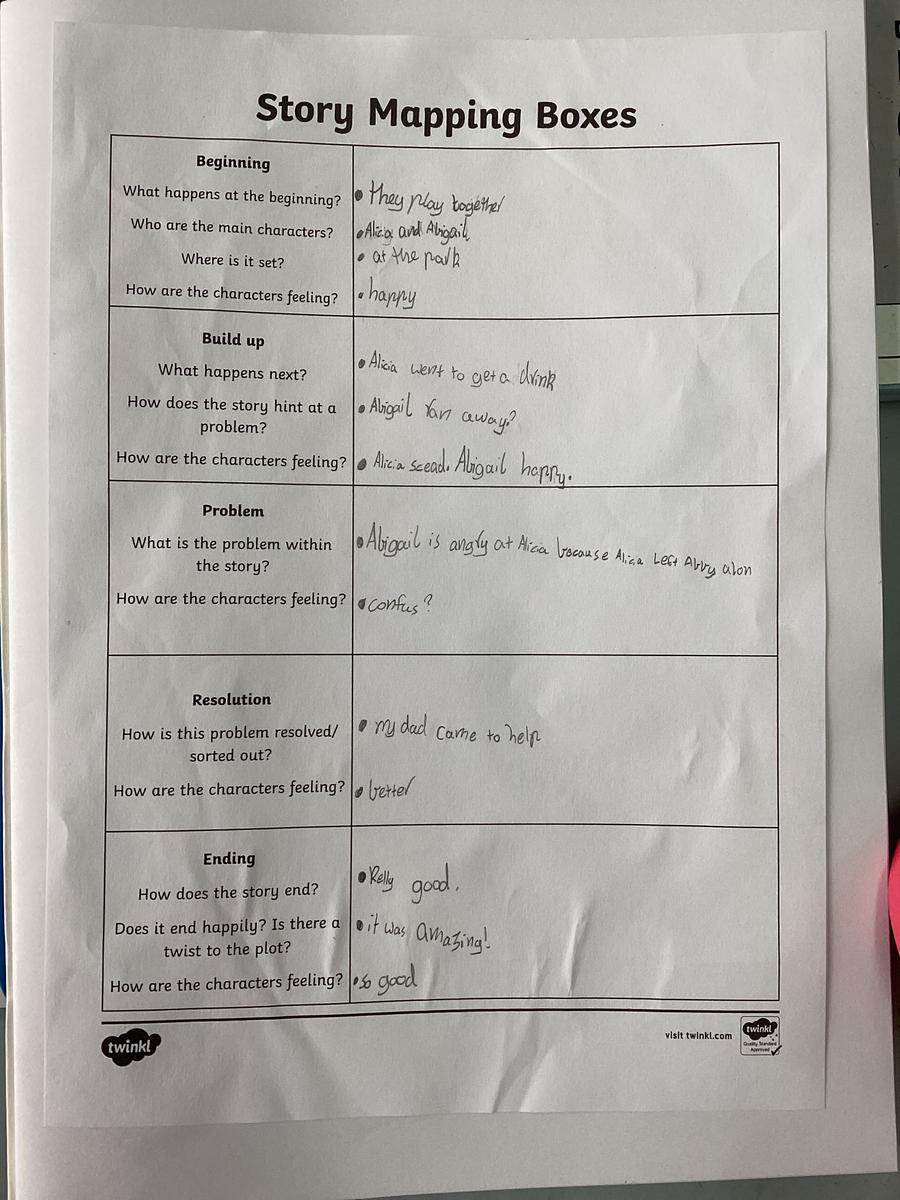 Story Mapping Boxes
Beginning
What happens at the beginning?
• they play together
Who are the main characters?
• Alicia and Abigail
Where is it set?
• at the park
How are the characters feeling?
• happy
Build up
What happens next?
• Alicia went to get a drink
How does the story hint at a
problem?
• Abigail ran away?
How are the characters feeling?
• Alicia scead. Abigail happy.
Problem
What is the problem within
the story?
• Abigail is angry at Alicia because Alicia Left Abby alon
How are the characters feeling?
• confus?
Resolution
How is this problem resolved/
sorted out?
• my dad came to help
How are the characters feeling?
• better
Ending
How does the story end?
• Relly good.
Does it end happily? Is there a
twist to the plot?
• it was amazing!
How are the characters feeling?
• so good
twinkl
visit twinkl.com
twinkl
Quality Standard
Approved